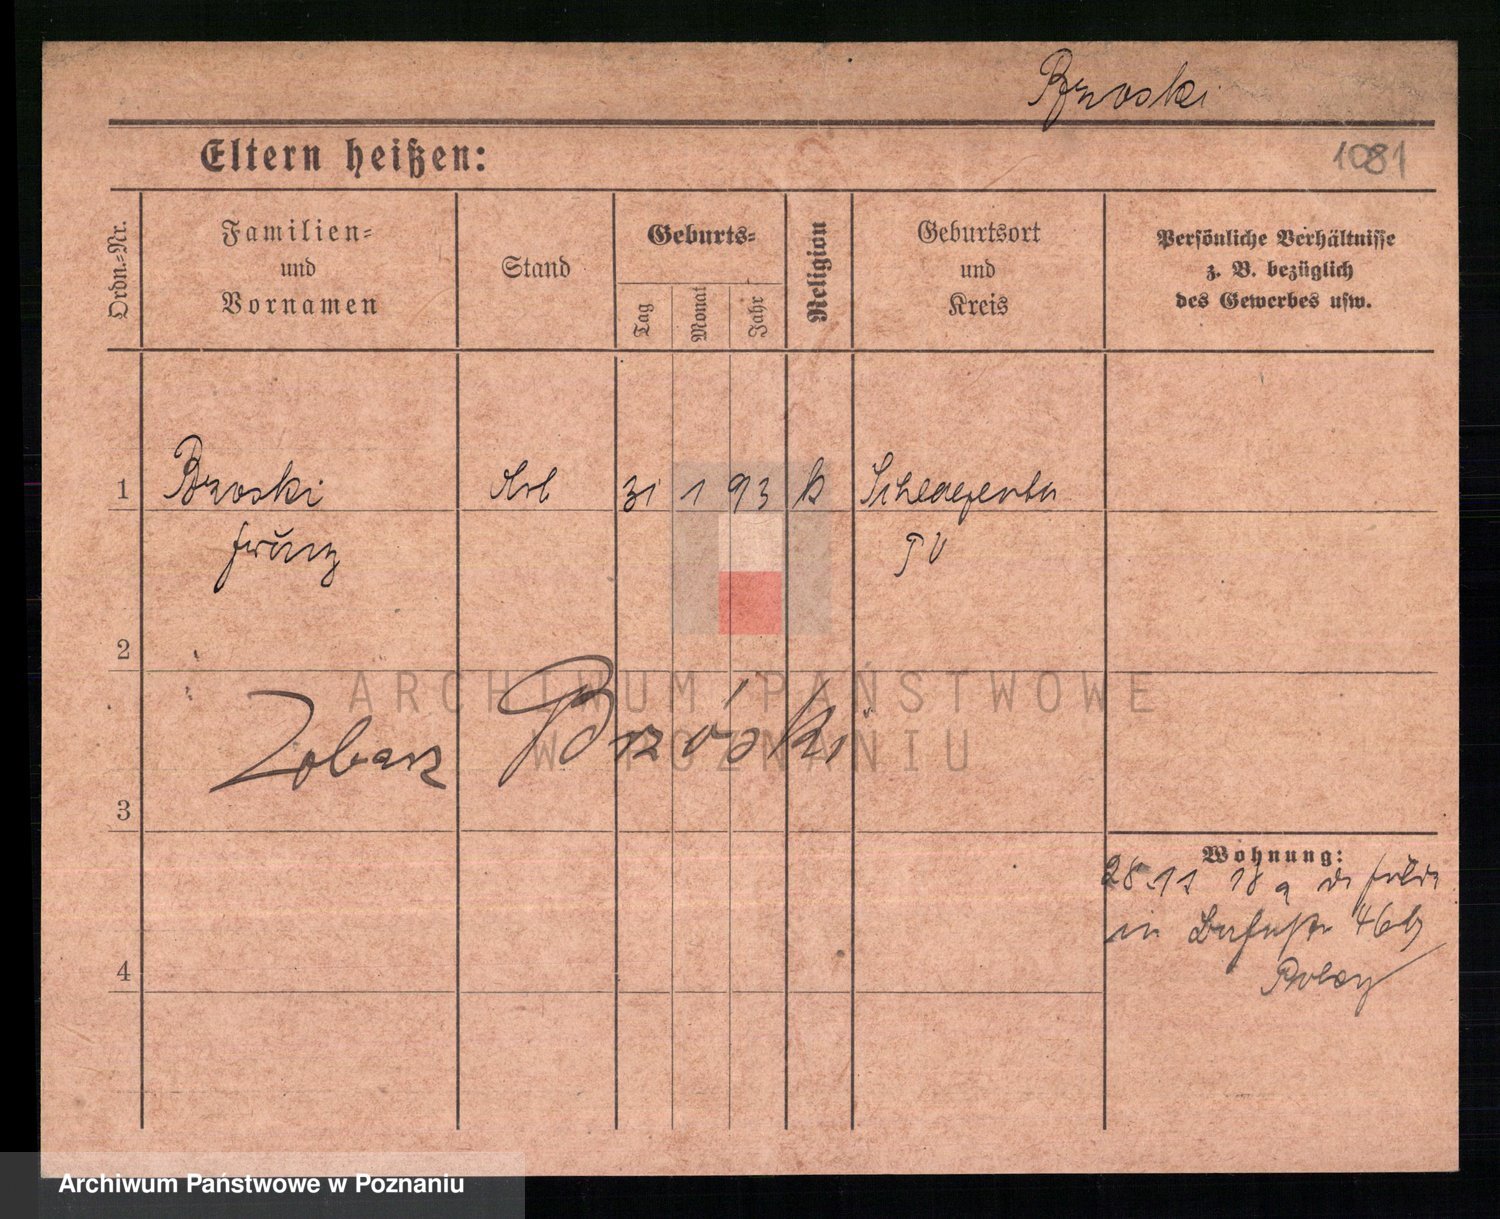 Brzoski
Eltern heißen:
1081
Ordn.-Nr.
Familien-
und
Vornamen
Stand
Geburts-
Tag
Monat
Jahr
Religion
Geburtsort
und
Kreis
Persönliche Verhältnisse
z. B. bezüglich
des Gewerbes usw.
1
Brzoski
Arb
31
1
93
k
Franz
2
Zobacz Brzóski
3
Wohnung:
28.11 18
in 46b
4
ARCHIWUM PAŃSTWOWE
W POZNANIU
Archiwum Państwowe w Poznaniu